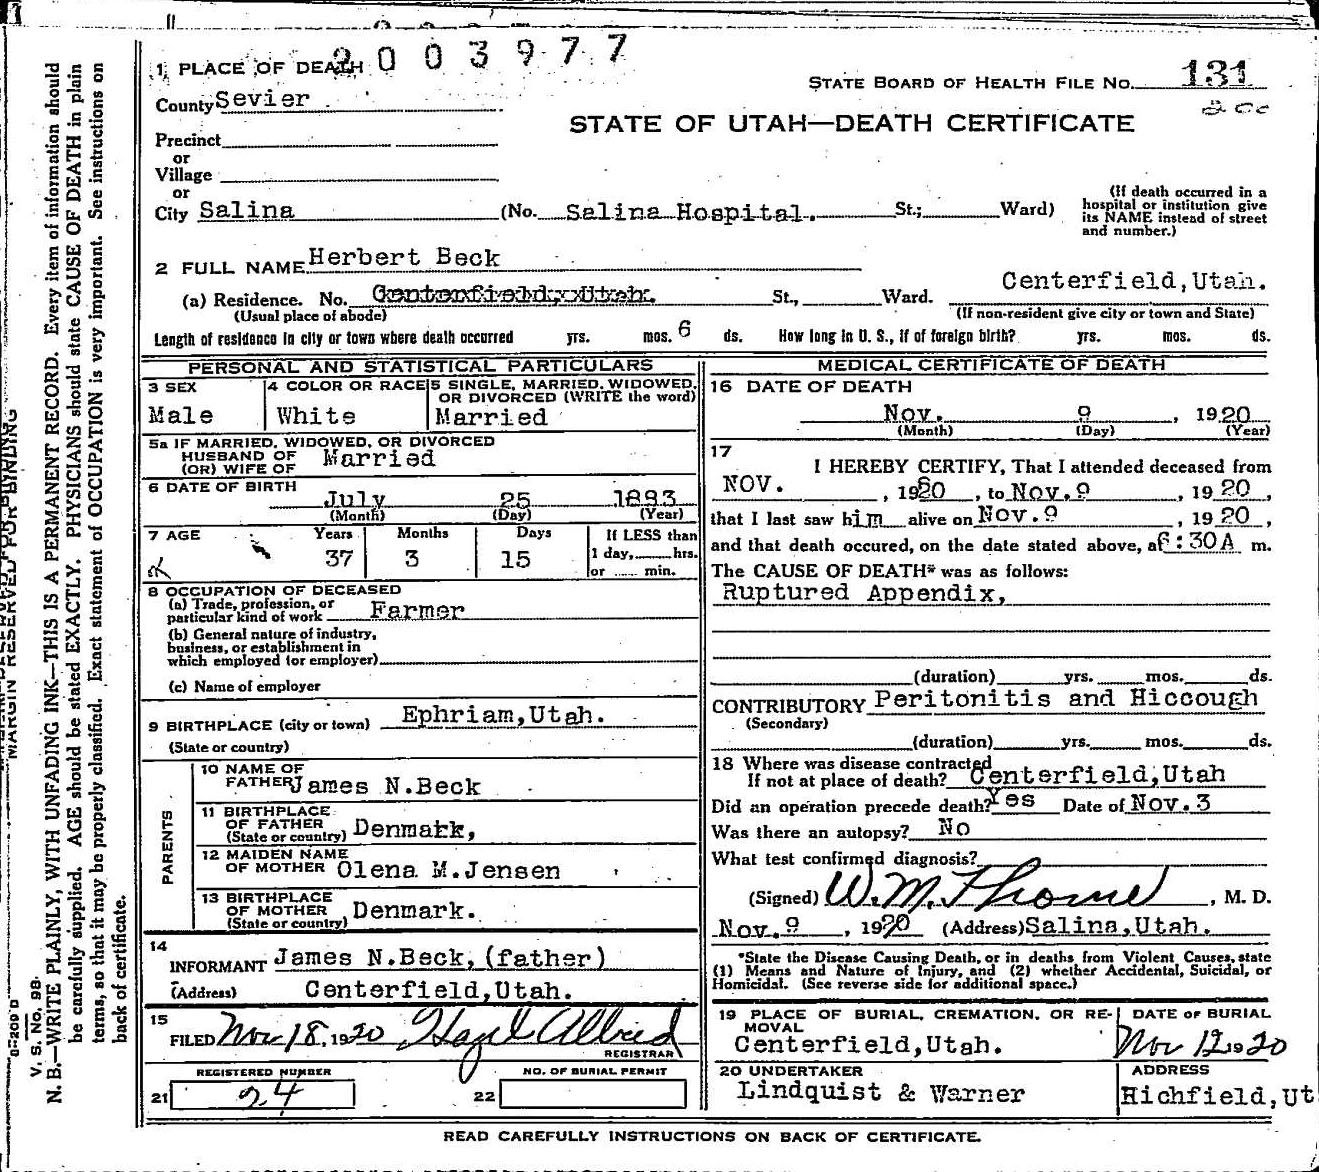 2003977
1 PLACE OF DEATH
STATE BOARD OF HEALTH FILE No. 131
200
County Sevier
STATE OF UTAH—DEATH CERTIFICATE
Precinct
or
Village
or
City Salina (No. Salina Hospital. St.; Ward) (If death occurred in a hospital or institution give its NAME instead of street and number.)
2 FULL NAME Herbert Beck
(a) Residence. No. Centerfield, Utah. St., Ward. Centerfield,Utah.
(Usual place of abode) (If non-resident give city or town and State)
Length of residence in city or town where death occurred yrs. mos. 6 ds. How long in U. S., if of foreign birth? yrs. mos. ds.
PERSONAL AND STATISTICAL PARTICULARS
3 SEX
Male
4 COLOR OR RACE
White
5 SINGLE, MARRIED, WIDOWED, OR DIVORCED (WRITE the word)
Married
5a IF MARRIED, WIDOWED, OR DIVORCED
HUSBAND OF
(OR) WIFE OF
Married
6 DATE OF BIRTH
July 25 1893
(Month) (Day) (Year)
7 AGE
Years Months Days
37 3 15
If LESS than
1 day, hrs.
or min.
8 OCCUPATION OF DECEASED
(a) Trade, profession, or
particular kind of work Farmer
(b) General nature of industry,
business, or establishment in
which employed (or employer)
(c) Name of employer
9 BIRTHPLACE (city or town) Ephriam,Utah.
(State or country)
PARENTS
10 NAME OF
FATHER James N.Beck
11 BIRTHPLACE
OF FATHER
(State or country) Denmark,
12 MAIDEN NAME
OF MOTHER Olena M.Jensen
13 BIRTHPLACE
OF MOTHER
(State or country) Denmark.
14
INFORMANT James N.Beck, (father)
(Address) Centerfield,Utah.
15
FILED Nov 18, 1920 Hazel Allred
REGISTRAR
REGISTERED NUMBER
21 24
NO. OF BURIAL PERMIT
22
MEDICAL CERTIFICATE OF DEATH
16 DATE OF DEATH
Nov. 9, 1920
(Month) (Day) (Year)
17
I HEREBY CERTIFY, That I attended deceased from
NOV. , 1920, to Nov.9 , 1920,
that I last saw him alive on Nov.9 , 1920,
and that death occured, on the date stated above, at 6:30A m.
The CAUSE OF DEATH* was as follows:
Ruptured Appendix,
(duration) yrs. mos. ds.
CONTRIBUTORY Peritonitis and Hiccough
(Secondary)
(duration) yrs. mos. ds.
18 Where was disease contracted
If not at place of death? Centerfield,Utah
Did an operation precede death? Yes Date of Nov.3
Was there an autopsy? No
What test confirmed diagnosis?
(Signed) W.M.Thorne, M. D.
Nov.9 , 1920 (Address) Salina,Utah.
*State the Disease Causing Death, or in deaths from Violent Causes, state
(1) Means and Nature of Injury, and (2) whether Accidental, Suicidal, or
Homicidal. (See reverse side for additional space.)
19 PLACE OF BURIAL, CREMATION, OR RE-
MOVAL
Centerfield,Utah.
DATE OF BURIAL
Nov 12 1920
20 UNDERTAKER
Lindquist & Warner
ADDRESS
Richfield,Ut
READ CAREFULLY INSTRUCTIONS ON BACK OF CERTIFICATE.
MARGIN RESERVED FOR BINDING
V. S. No. 98
N. B.—WRITE PLAINLY, WITH UNFADING INK—THIS IS A PERMANENT RECORD. Every item of information should
be carefully supplied. AGE should be stated EXACTLY. PHYSICIANS should state CAUSE OF DEATH in plain
terms, so that it may be properly classified. Exact statement of OCCUPATION is very important. See instructions on
back of certificate.